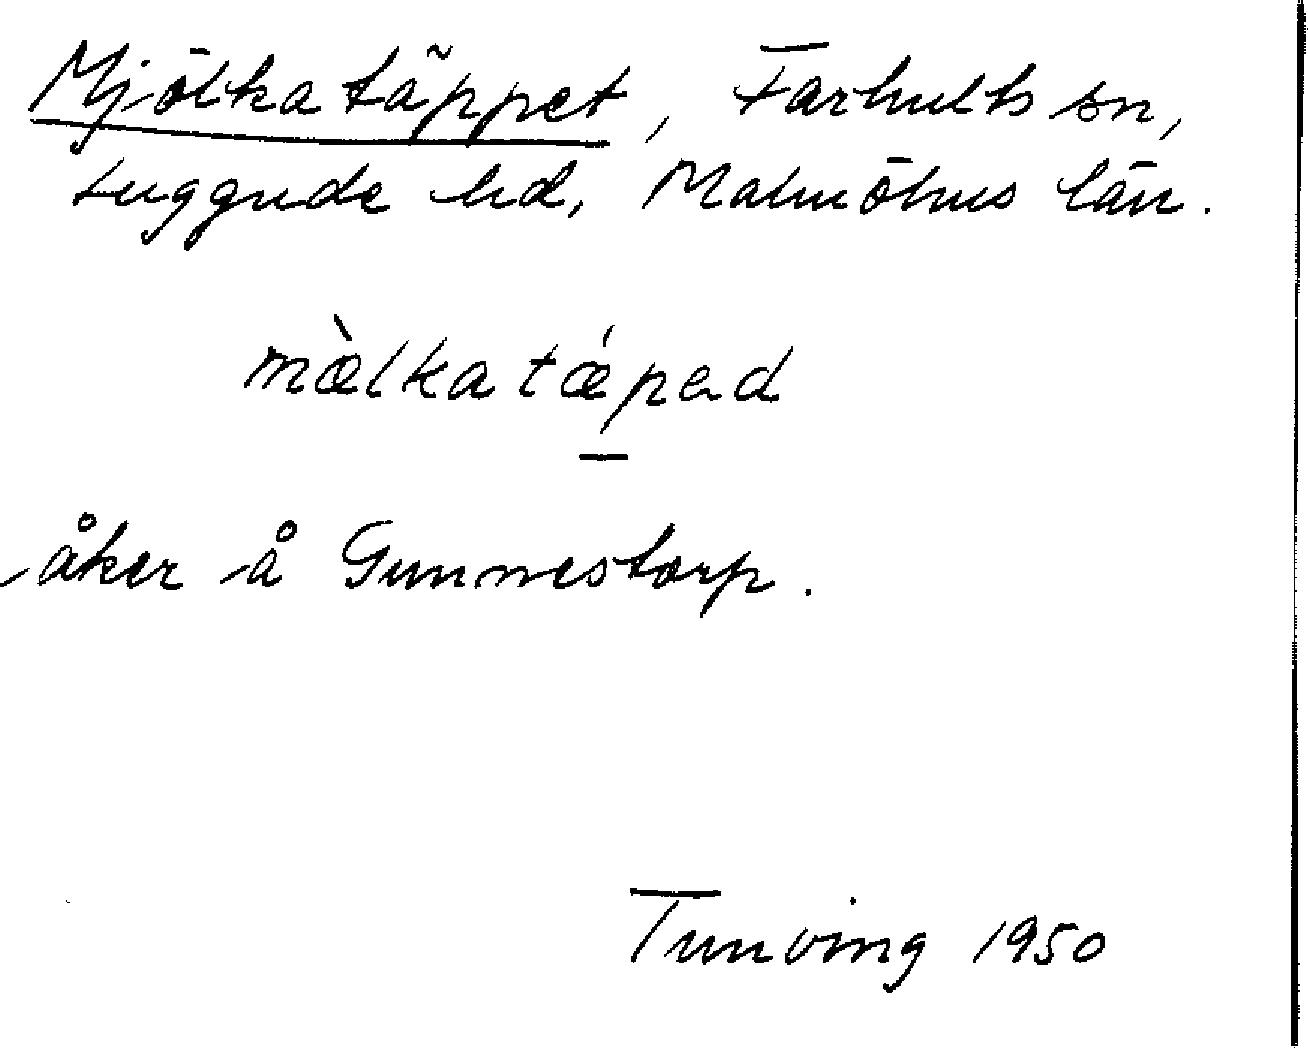 Mjölkatäppet, Farhults sn,
Luggude hd, Malmöhus län.
mæ̀lkatǽped
åker å Gunnestorp.
Tunving 1950